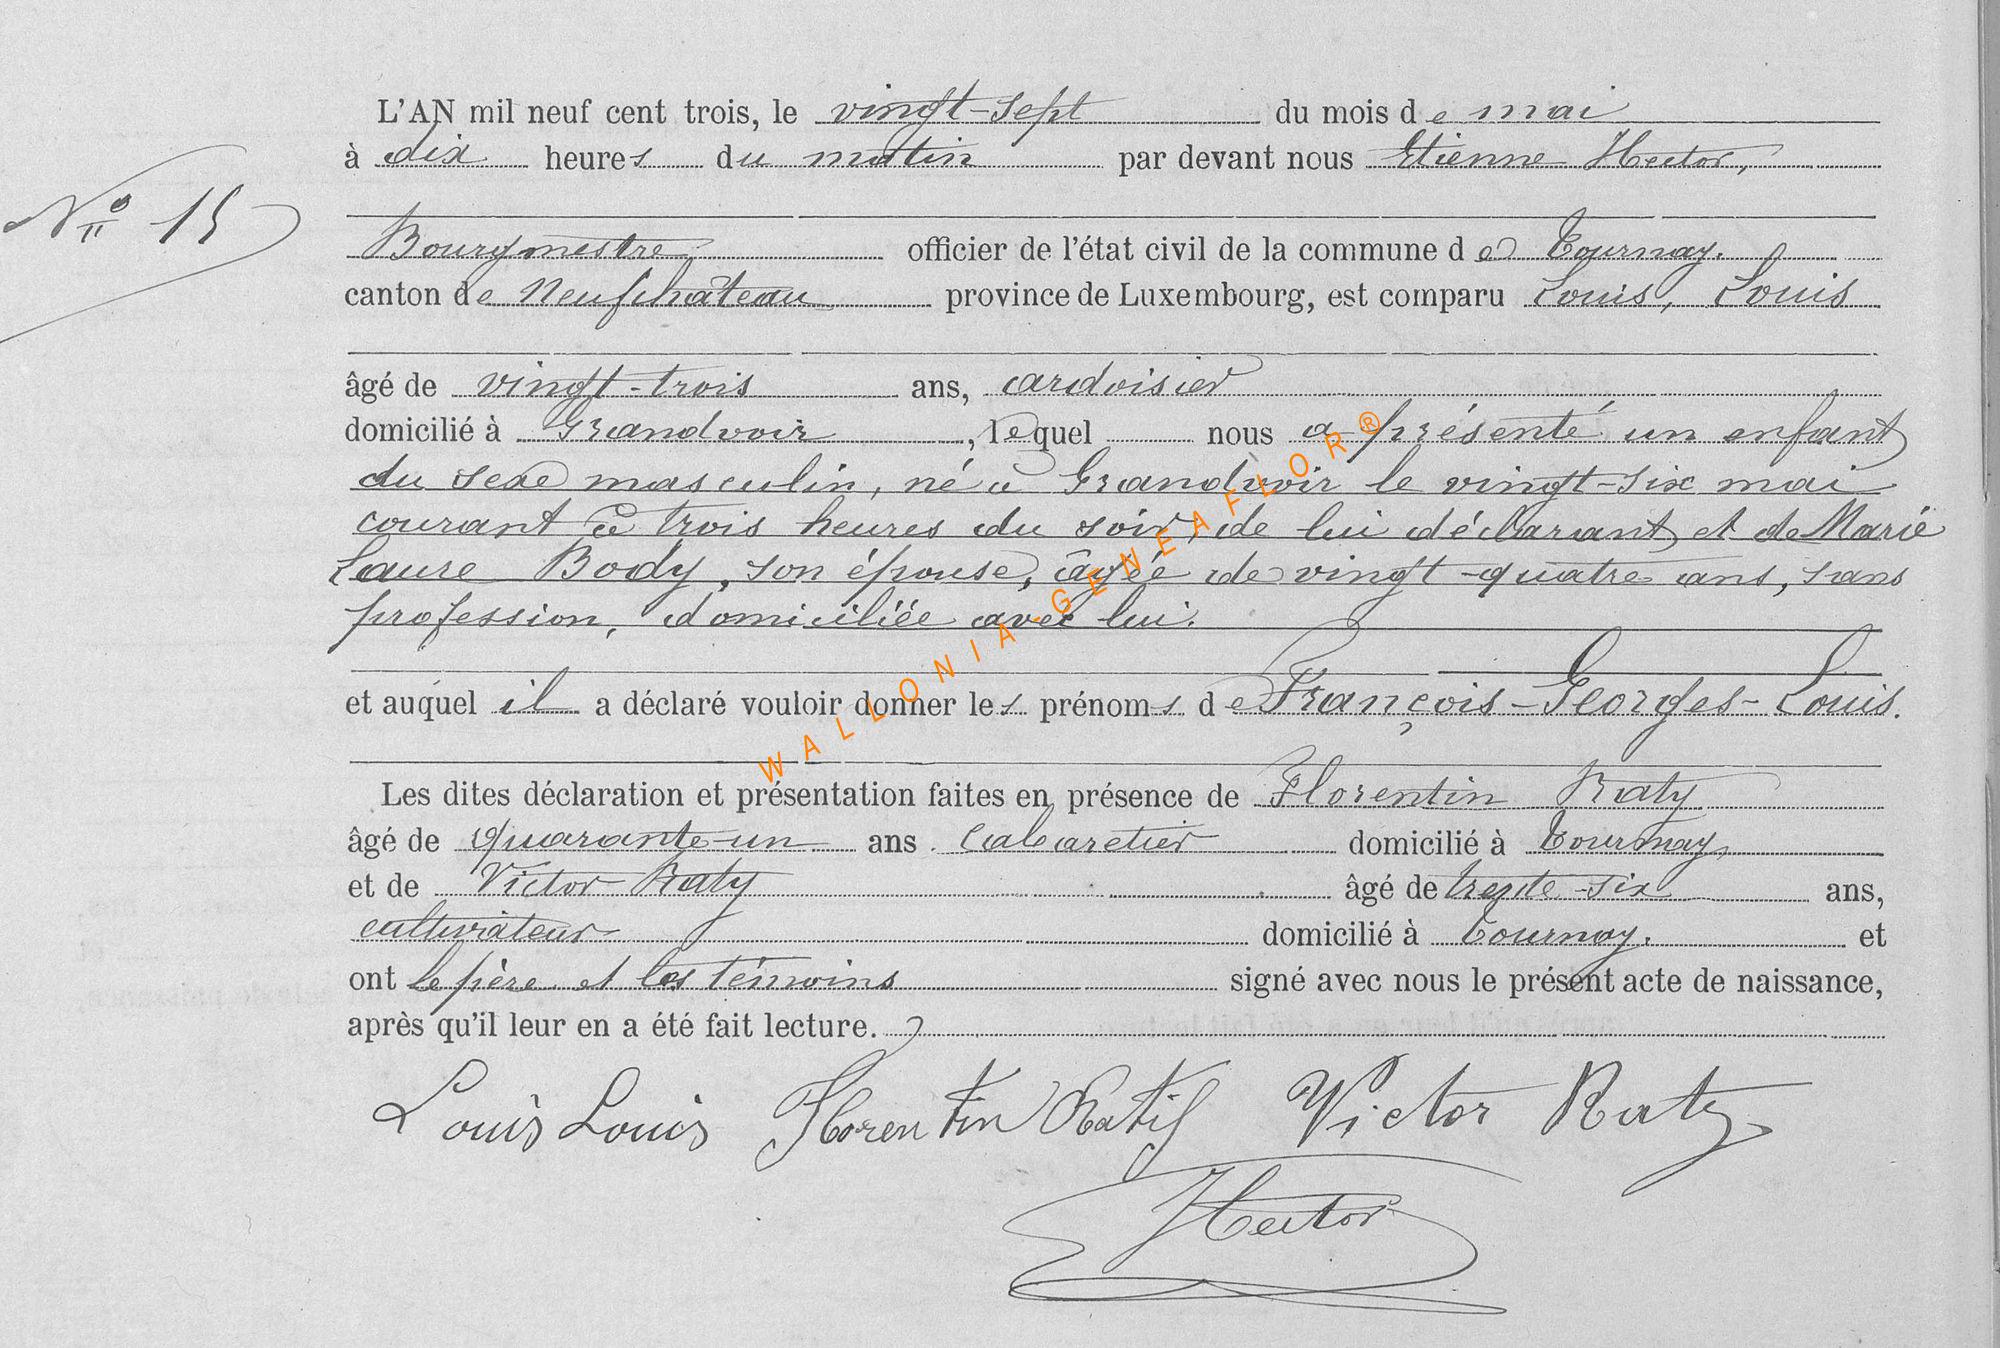 L'AN mil neuf cent trois, le vingt-sept du mois de mai
à dix heures du matin par devant nous Etienne Hector,
N° 15
Bourgmestre, officier de l'état civil de la commune de Tournay.
canton de Neufchâteau province de Luxembourg, est comparu Louis, Louis
âgé de vingt-trois ans, ardoisier
domicilié à Grandvoir, lequel nous a présenté un enfant
du sexe masculin, né à Grandvoir le vingt-six mai
courant à trois heures du soir, de lui déclarant et de Marie
Laure Body, son épouse, âgée de vingt-quatre ans, sans
profession, domiciliée avec lui.
et auquel il a déclaré vouloir donner les prénoms de François-Georges-Louis.
Les dites déclaration et présentation faites en présence de Florentin Raty
âgé de quarante-un ans cabaretier domicilié à Tournay,
et de Victor Raty âgé de trente-six ans,
cultivateur domicilié à Tournay. et
ont le père et les témoins signé avec nous le présent acte de naissance,
après qu'il leur en a été fait lecture.
Louis Louis Florentin Ratij Victor Raty
Hector
WALLONIA-GENEAFLOR®